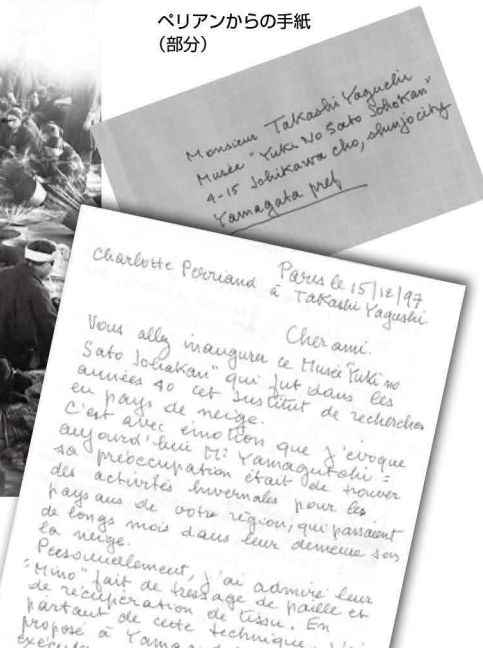 ペリアンからの手紙
（部分）
Monsieur Takashi Yaguchi
Musée "Yuki No Sato Johokan"
4-15 Ishikawa cho, shinjo city
Yamagata pref
Paris le 15/12/97
Charlotte Perriand à Takashi Yagushi
Cher ami.
Vous allez inaugurer ce Musée "Yuki no
Sato Johakan" qui fut dans les
années 40 cet Institut de recherches
en pays de neige.
C'est avec émotion que j'évoque
aujourd'hui Mr Yamagutchi =
sa préoccupation était de trouver
des activités hivernales pour les
paysans de votre région, qui passaient
de longs mois dans leur demeure sous
la neige.
Personnellement, j'ai admiré leur
"Mino" fait de tressage de paille et
de récupération de tissu. En
partant de cette technique, j'ai
proposé à